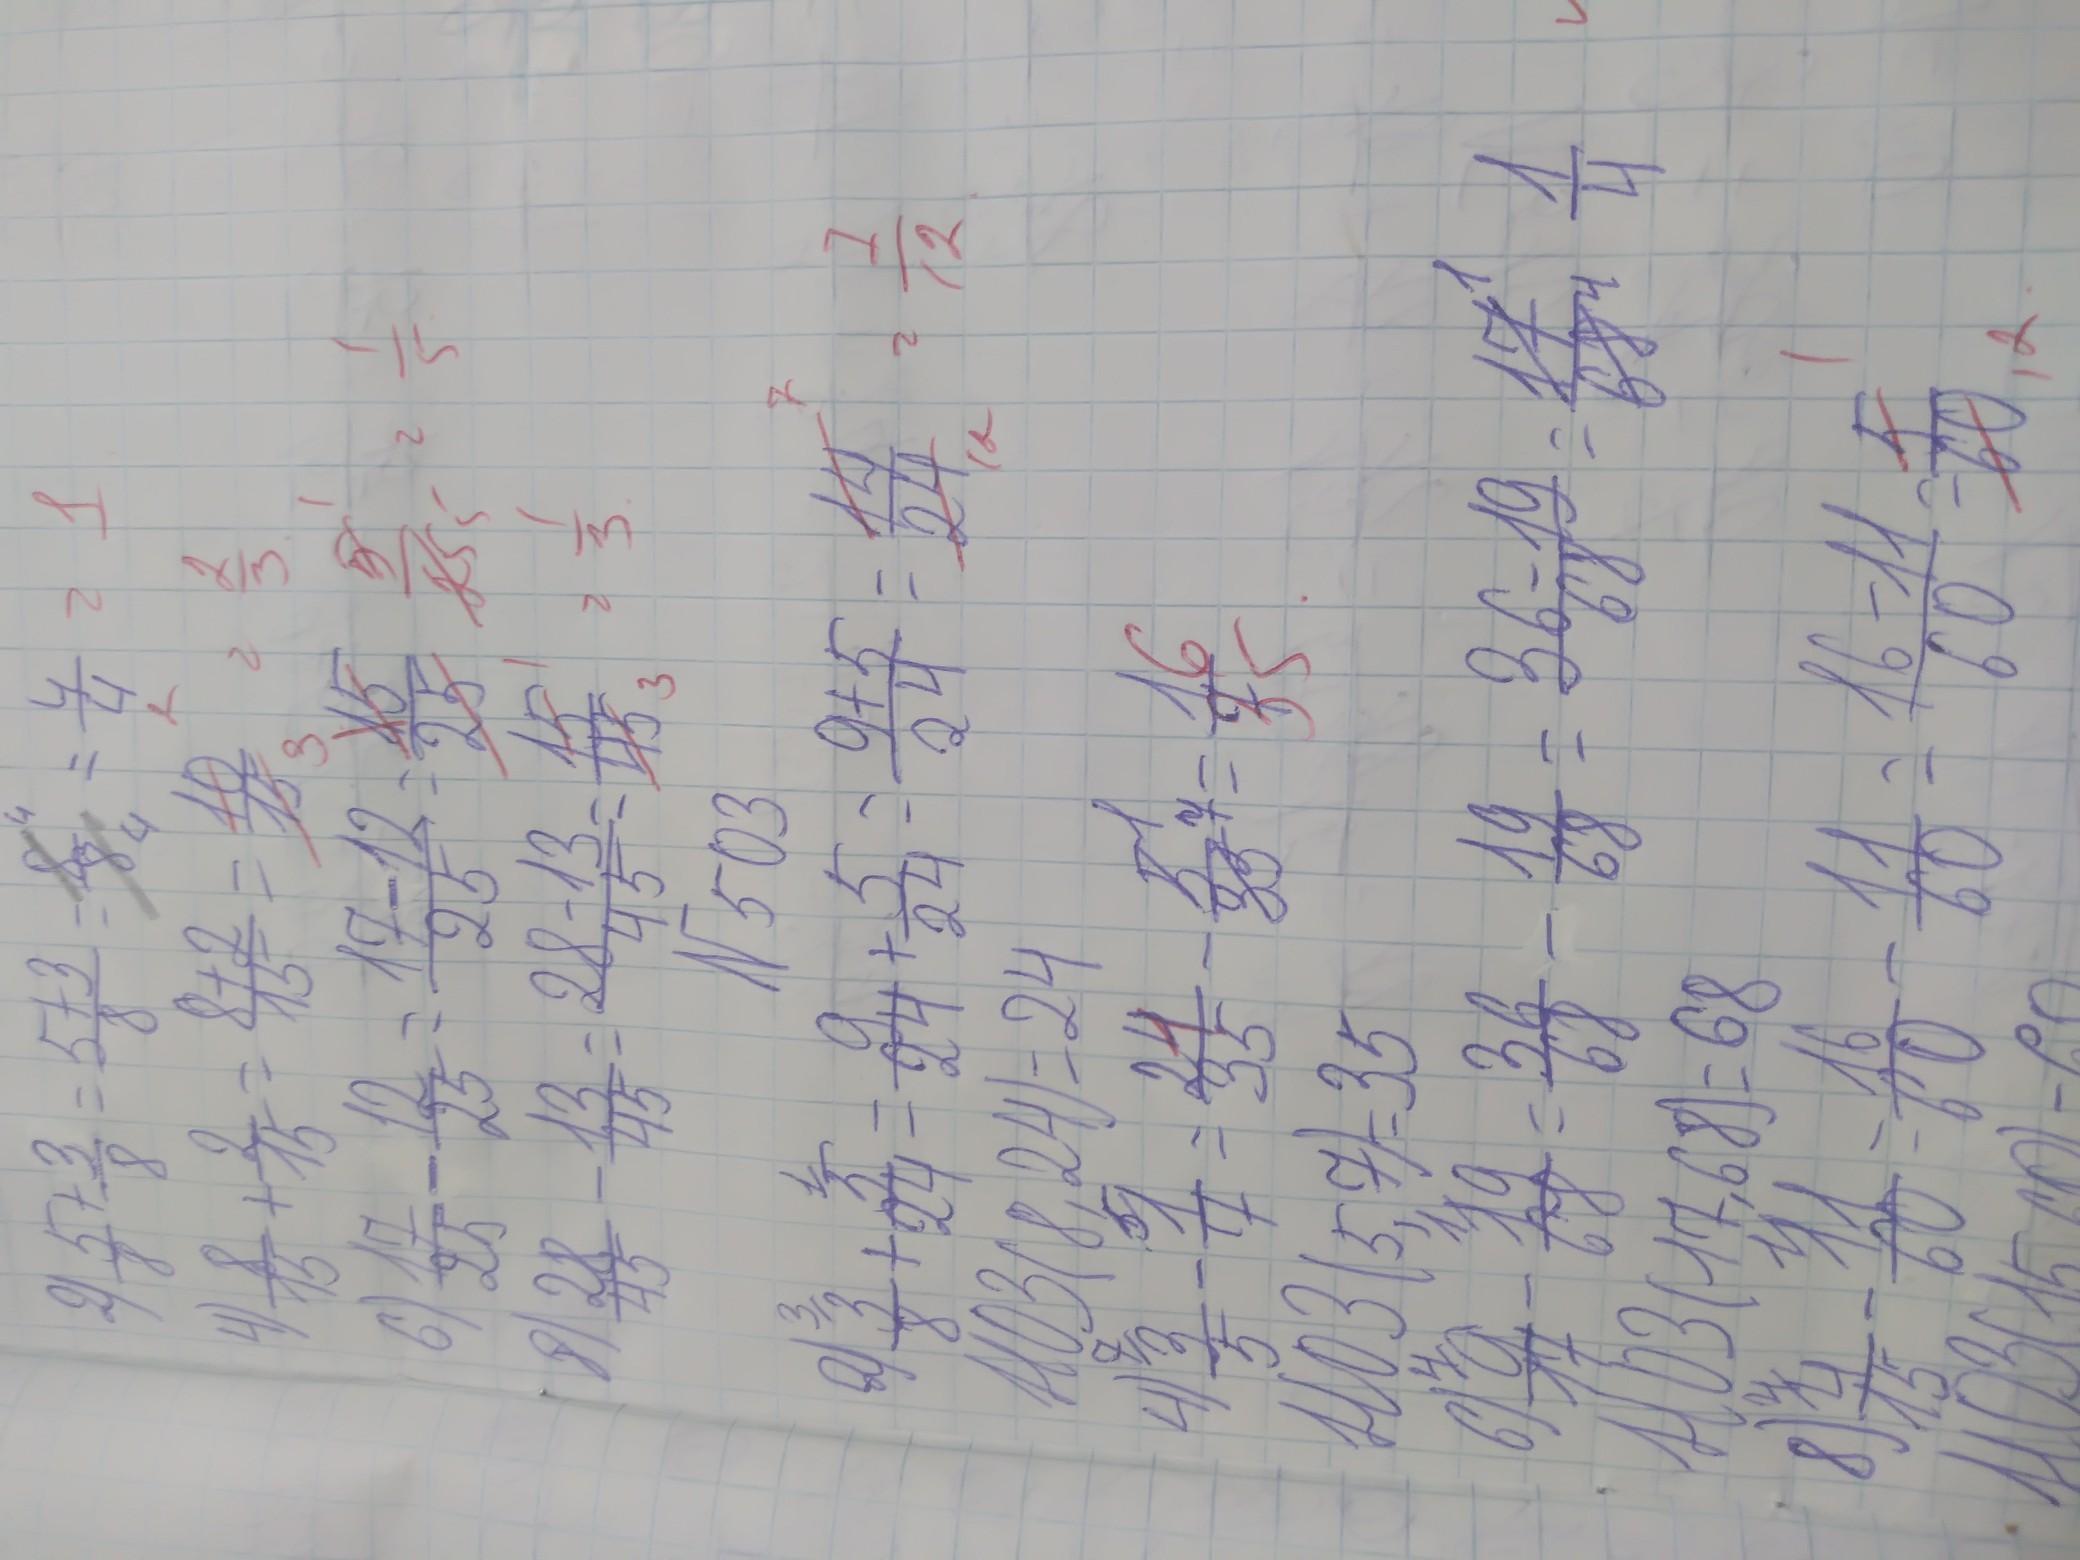 2) 5/8 + 3/8 = 5+3/8 = 8/8 = 4/4 = 1
4) 8/15 + 2/15 = 8+2/15 = 10/15 = 2/3
6) 17/25 - 12/25 = 17-12/25 = 15/25 = 5/25 = 1/5
8) 28/45 - 13/45 = 28-13/45 = 15/45 = 1/3
N 503
2) 3/8 + 5/24 = 9/24 + 5/24 = 9+5/24 = 14/24 = 7/12
НОЗ(8,24)=24
4) 3/5 - 1/7 = 21/35 - 5/35 = 16/35
НОЗ(5,7)=35
6) 9/17 - 19/68 = 36/68 - 19/68 = 36-19/68 = 17/68 = 1/4
НОЗ(17,68)=68
8) 4/15 - 11/60 = 16/60 - 11/60 = 16-11/60 = 5/60 1 12
НОЗ(15,60)=60